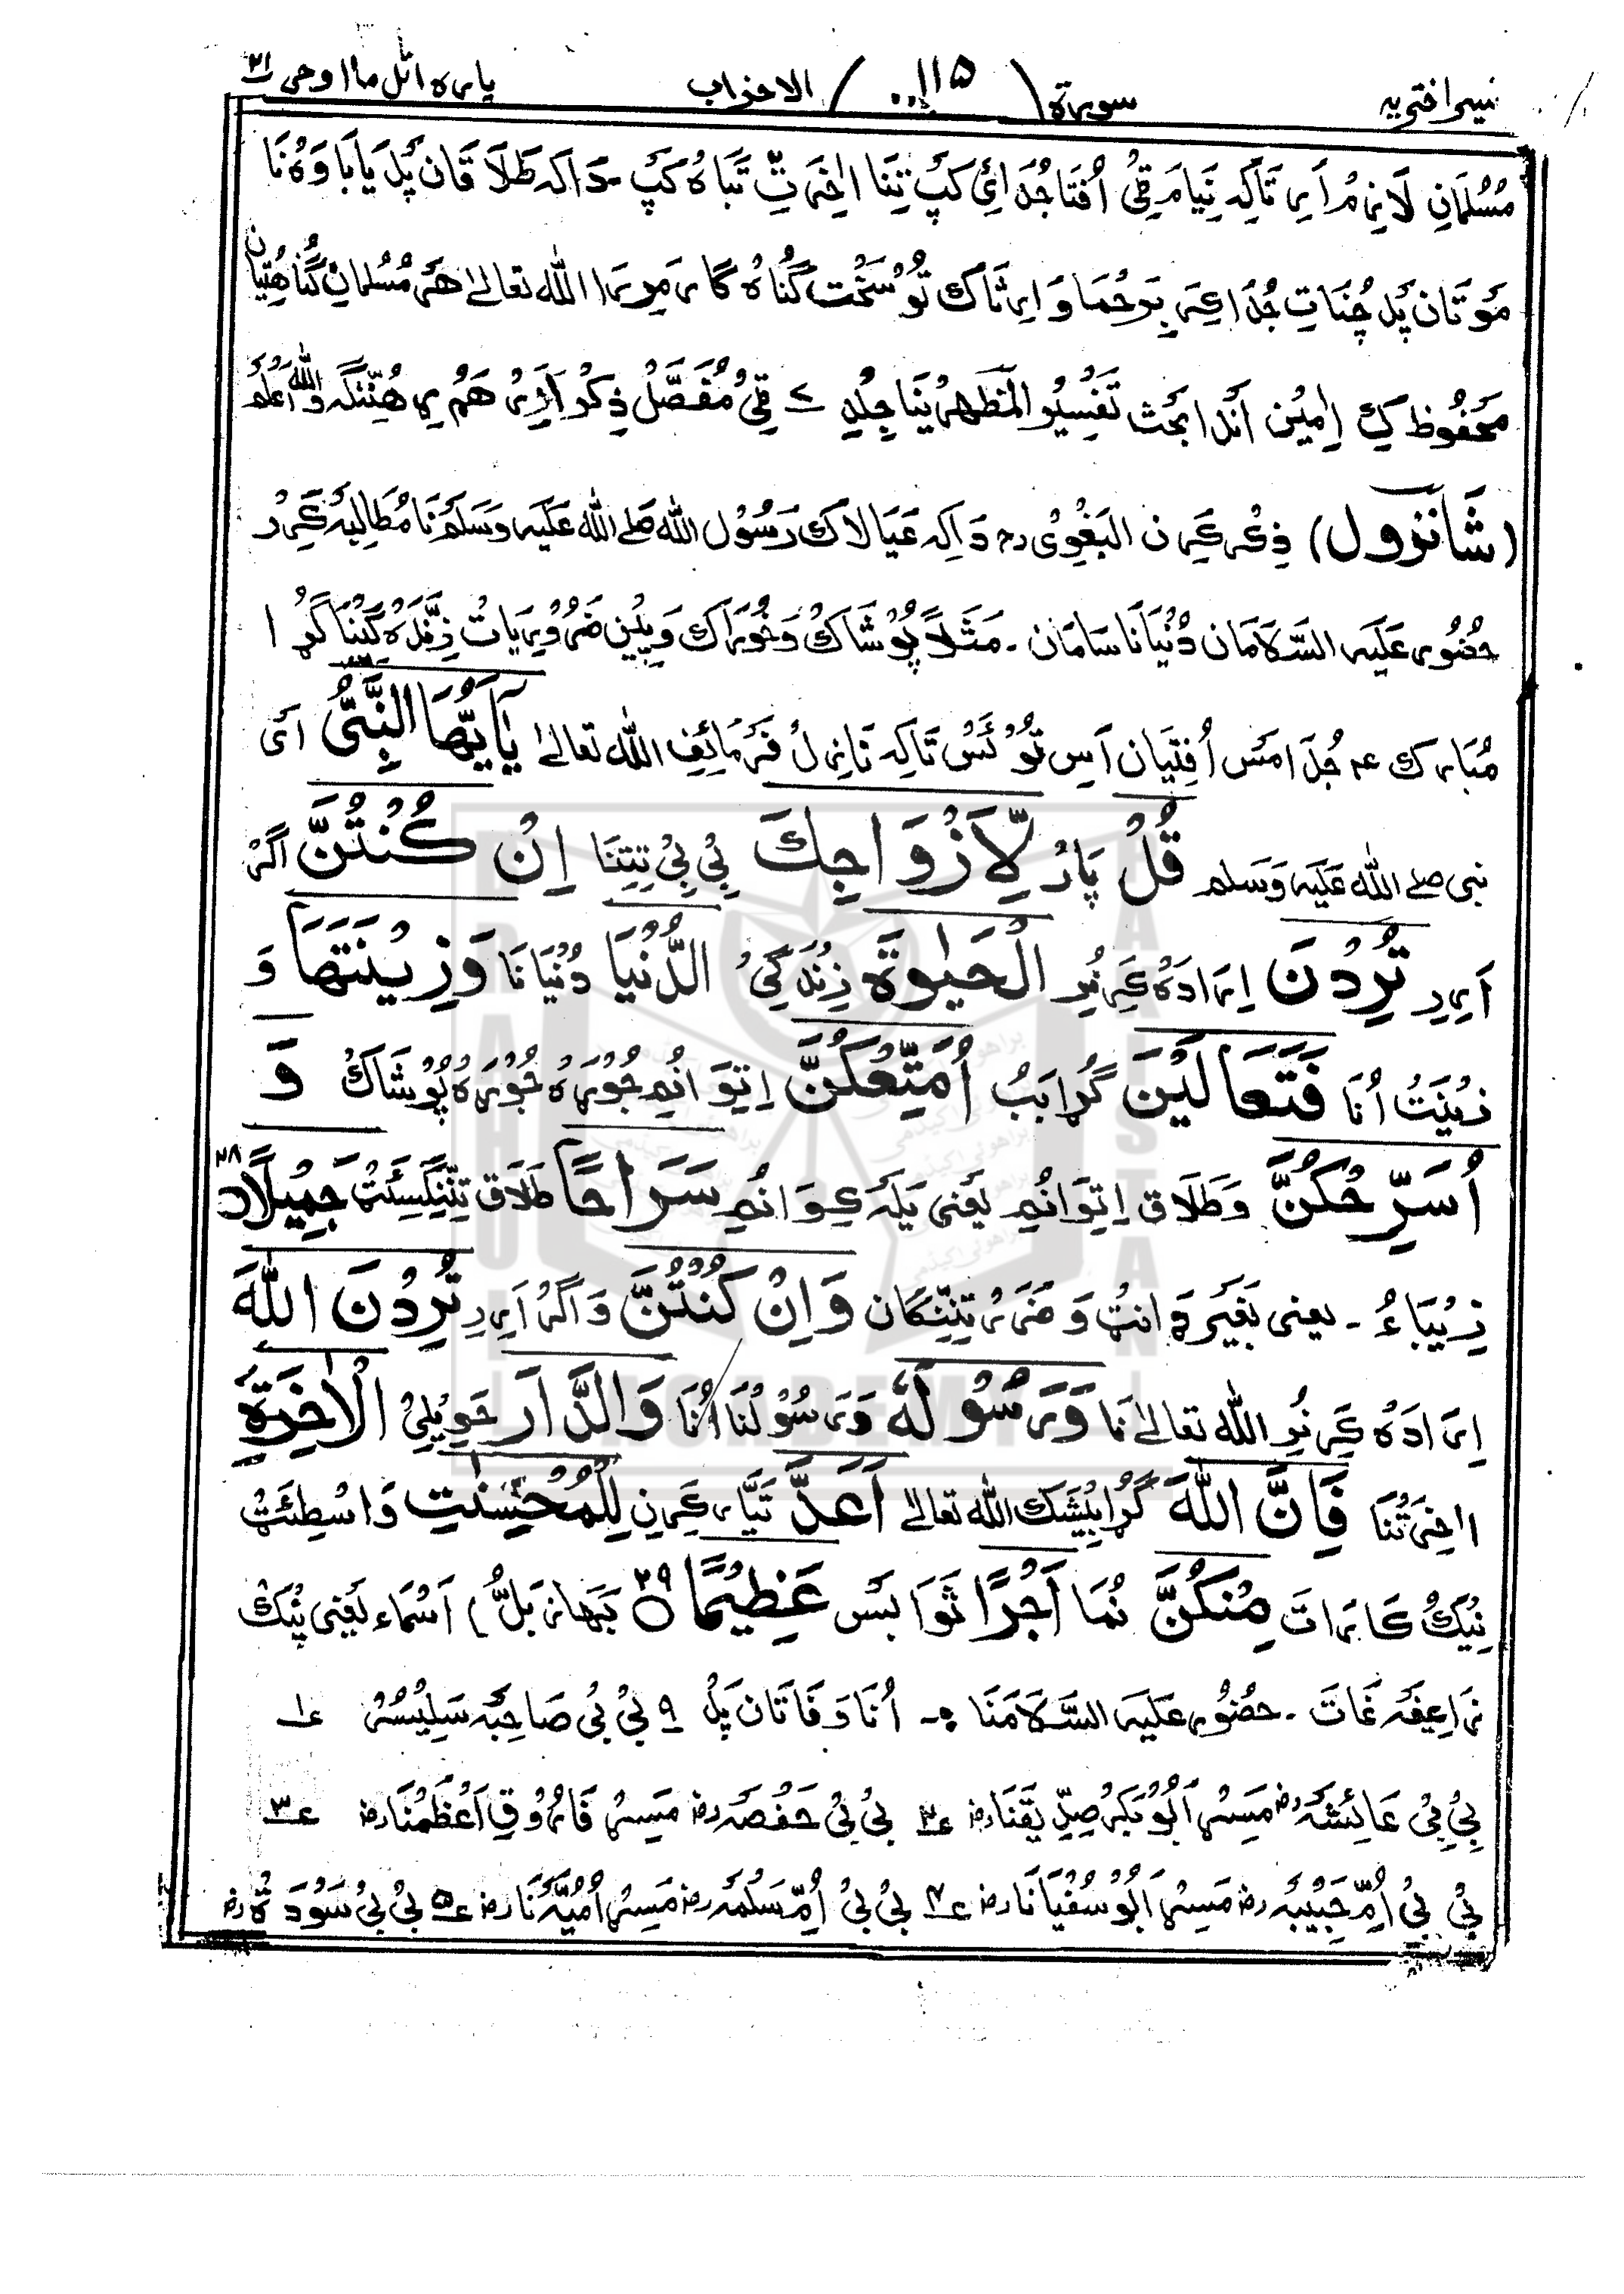 تیسرا فتریه سورة (١١٥) الاحزاب پاره اتل ما اوحی ٢١
مُسُلمَانِ لَازِم اَرِ تَاکِہ نِیَام قِیْ اُفتَا جُدَائِی کَپ تِنَا اخِرَتِ تَبَاہ کَپ ۔ دَاکہ طَلَاقَان پُل یَا بَاوَہ نَا
مَوتَان پُل چُنَاتِ جُدَا عِرِ بِرحُمَا وَارِثَاک تَو سَخت گُنَاہ گار مِریرَا اللہ تعالیٰ هَر مُسُلمَانِ گُنَاهتِیَان
مَحفُوظ کِ اٰمِیُن اَندا بَحث تَفسِیرُ المَظهرِی نَا جِلدِ ٧ قِیْ مُفَصَّلُ ذِکُر اَرِی هَم رِ هُنِنگہ وَاللہُ اَعلَمُ
(شَانزول) ذِکر کِرِن البَغْوِی رح دَاکِہ عَیَالَاک رَسُوْل اللہ صلے اللہ عَلَیہ وَسَلم نَا مُطَالِبہ کِرِر
حضُور عَلَیہ السَّلَامَان دُنْیَانَا سَامَان ۔ مَثَلًا پُوْشَاک وَخُورَاک وَپِیُن ضَرُوْرِیَات زِندہ گِینَا گُڑا
مُبَارک ع جُدَا مَس اُفِتیَان اَسِ تُو ئَس تَاکِہ نَازِل فَرمَائِف اللہ تعالیٰ یٰۤاَیُّهَا النَّبِیُّ اَی
نبی صلے اللہ عَلَیہ وَسَلم قُلْ پَار لِّاَزْوَاجِكَ بِی بِی تِتِنَا اِنْ كُنْتُنَّ اگر
اَرِرِ تُرِدْنَ اِرَادَہ کِرِ نُرِ الْحَیٰوةَ زِندَگِی الدُّنْیَا دُنیَانَا وَزِیْنَتَهَا وَ
زِینَت اُنَا فَتَعَالَیْنَ گُڑا بَبُ اُمَتِّعْكُنَّ اِتِوَ انُم جُوْرَہ جُوْرَہ پُوْشَاک وَ
اُسَرِّحْكُنَّ وَطَلَاق اِتِوَانُم یَعنی یَلَہ کِوَانُم سَرَاحًا طَلَاق تِنِنگسِئَت جَمِیْلًا ٢٨
زِیْبَاءُ ۔ یعنی بَغَیر وَ ضَرر تِنِنگان وَاِنْ كُنْتُنَّ وَاگر اَرِرِ تُرِدْنَ اللّٰهَ
اِرَادَہ کِرِ نُرِ اللہ تعالیٰ نَا وَرَسُوْلَهٗ وَرسُوْلنَا اُنَا وَالدَّارَ حَوِیلِی الْاٰخِرَةَ
اٰخِرَتنَا فَاِنَّ اللّٰهَ گُڑا بِیشَک اللہ تعالیٰ اَعَدَّ تَیَّار کِرِنِ لِلْمُحْسِنٰتِ وَاسْطِئَت
نِیْک کَارَاتَ مِنْكُنَّ نُمَا اَجْرًا ثَوَابس عَظِیْمًا ٢٩ ( بَهَاز بَلُّ ) اَسْمَاء یَعنی پِنک
نرَاعِیفَہ غَاتَ ۔ حضُور عَلَیہ السَّلَامنَا ۔ اُنَا وَفَاتَان پُل ٩ بِی بِی صَاحِبہ سَلِیسُر ١ع
بِی بِی عَائِشَہ رض مَسِر اَبُوْبَکر صِدِّیقنَا رض ٢ع بِی بِی حَفصَہ رض مَسِر فَارُوْق اَعظَمنَا رض ٣ع
بِی بِی اُمِّ حَبِیْبَہ رض مَسِر اَبُوْسُفیَانَا رض ٤ع بِی بِی اُمِّ سَلمَہ رض مَسِر اُمَیَّہ نَا رض ٥ع بِی بِی سَوْدَہ رض